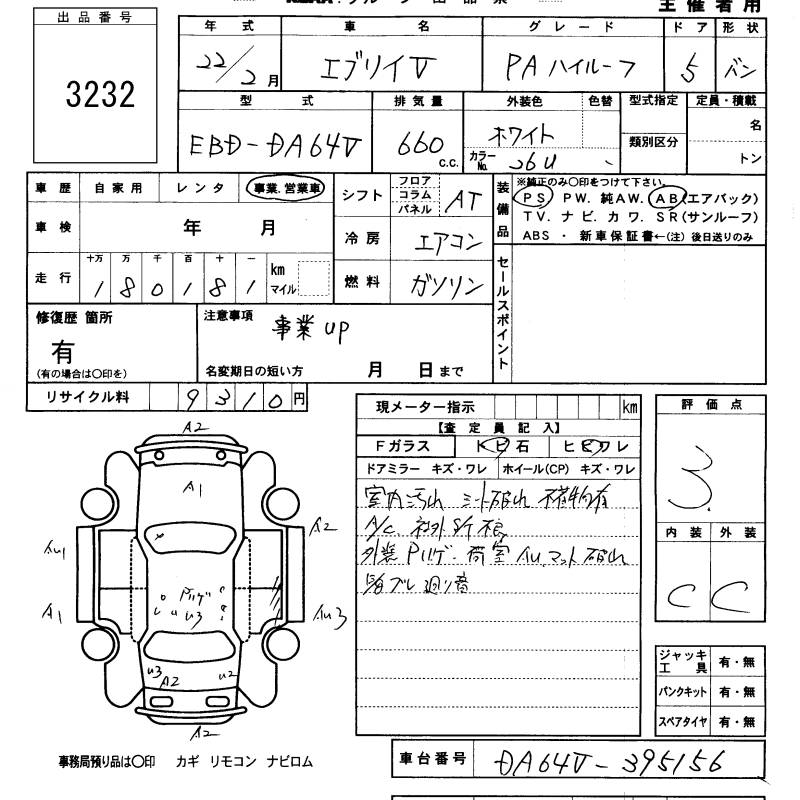 主催者用
出品番号
3232
年式 車名 グレード ドア 形状
22/2月 エブリイV PAハイルーフ 5 バン
型式 排気量 外装色 色替 型式指定 定員・積載
EBD-DA64V 660 c.c. ホワイト 名
カラーNo. 26U 類別区分 トン
車歴 自家用 レンタ 事業.営業車
シフト フロア コラム パネル AT
装備品 ※純正のみ〇印をつけて下さい。
PS PW. 純AW. AB(エアバック)
TV. ナビ. カワ. SR(サンルーフ)
ABS ・ 新車保証書←(注) 後日送りのみ
車検 年 月
冷房 エアコン
走行 十万 万 千 百 十 一 km マイル
1 8 0 1 8 1
燃料 ガソリン
セールスポイント
修復歴 箇所
有
(有の場合は〇印を)
注意事項 事業UP
名変期日の短い方 月 日まで
リサイクル料 9310円
現メーター指示 km
【査定員記入】
Fガラス トビ石 ヒビワレ
ドアミラー キズ・ワレ ホイール(CP) キズ・ワレ
室内汚れ シート破れ
A/C 社外
外装Pハゲ・荷室AU.マット破れ
ブレ廻り音
評価点
3.
内装 外装
C C
ジャッキ工具 有・無
パンクキット 有・無
スペアタイヤ 有・無
A2
A1
A2
AU1
A1
Pハゲ
U3
AU3
U3
A2
U2
A2
事務局預り品は〇印 カギ リモコン ナビロム
車台番号 DA64V-395156